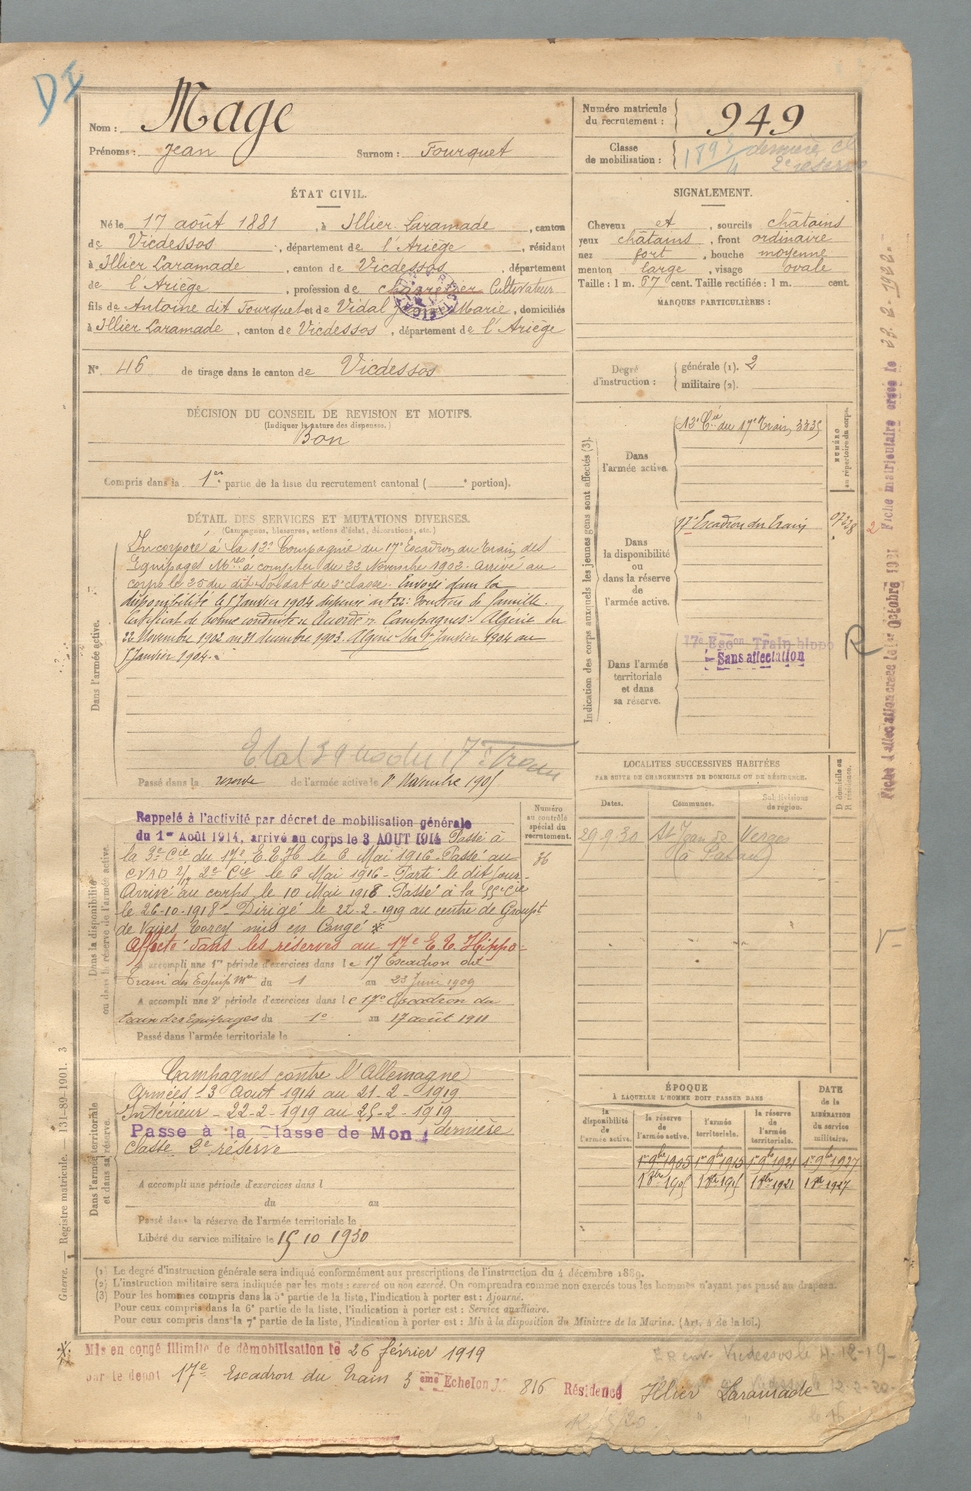 DI
Nom : Mage
Prénoms : Jean Surnom : Fourquet
Numéro matricule du recrutement : 949
Classe de mobilisation : dernière Cl
2e réserve
ÉTAT CIVIL.
Né le 17 août 1881, à Illier Laramade, canton
de Vicdessos, département de l'Ariège, résidant
à Illier Laramade, canton de Vicdessos, département
de l'Ariège, profession de charretier Cultivateur
fils de Antoine dit Fourquet et de Vidal Marie, domiciliés
à Illier Laramade, canton de Vicdessos, département de l'Ariège
N° 46 de tirage dans le canton de Vicdessos
SIGNALEMENT.
Cheveux et, sourcils châtains
yeux châtains, front ordinaire
nez fort, bouche moyenne
menton large, visage ovale
Taille : 1 m. 67 cent. Taille rectifiée : 1 m. cent.
MARQUES PARTICULIÈRES :
Degré d'instruction : générale (1). 2
militaire (2).
DÉCISION DU CONSEIL DE REVISION ET MOTIFS.
(Indiquer la nature des dispenses.)
Bon
Compris dans la 1re partie de la liste du recrutement cantonal ( e portion).
Indication des corps auxquels les jeunes gens sont affectés (3).
NUMÉRO au répertoire du corps.
Dans l'armée active.
13e Cie du 17e Train, 3335
Dans la disponibilité ou dans la réserve de l'armée active.
17e Escadron du Train
Dans l'armée territoriale et dans sa réserve.
17e Escon Train hippo
Sans affectation
R
DÉTAIL DES SERVICES ET MUTATIONS DIVERSES.
(Campagnes, blessures, actions d'éclat, décorations, etc.)
Dans l'armée active.
Incorporé à la 13e Compagnie du 17e Escadron du Train des
Equipages Mres à compter du 22 Novembre 1902. Arrivé au
corps le 25 du dit. Soldat de 2e classe. Envoyé dans la
disponibilité le 5 Janvier 1904
Certificat de bonne conduite Accordé. Campagnes : Algérie du
22 Novembre 1902 au 31 décembre 1903. Algérie du 1er Janvier 1904 au
5 Janvier 1904.
Passé dans la réserve de l'armée active le 1er Novembre 1905
LOCALITÉS SUCCESSIVES HABITÉES
PAR SUITE DE CHANGEMENTS DE DOMICILE OU DE RÉSIDENCE.
Dates. Communes. Subdivisions de région. D domicile ou R résidence.
29.9.30 St Jean de Verges
Dans la disponibilité ou dans la réserve de l'armée active.
Numéro au contrôle spécial du recrutement.
36
Rappelé à l'activité par décret de mobilisation générale
du 1er Août 1914, arrivé au corps le 3 AOUT 1914 Passé à
la 3e Cie du 17e E.T.H le 6 Mai 1916. Passé au
CVAD 2/17 2e Cie le 6 Mai 1916 - Parti le dit jour
Arrivé au corps le 10 Mai 1918 - Passé à la 55e Cie
le 26-10-1918 - Dirigé le 22-2-1919 au centre de Groupt
de Vaires Torcy mis en Congé *
Affecté dans les réserves au 17e E.T. Hippo
A accompli une 1re période d'exercices dans le 17 Escadron du
Train des Equip. Mres du 1 au 23 Juin 1909
A accompli une 2e période d'exercices dans le 17e Escadron du
Train des Equipages du 1er au 17 août 1911
Passé dans l'armée territoriale le
Dans l'armée territoriale et dans sa réserve.
Campagnes contre l'Allemagne
Armées 3 Août 1914 au 21-2-1919
Intérieur - 22-2-1919 au 25-2-1919
Passé à la Classe de Mon dernière
Classe 2e réserve
A accompli une période d'exercices dans l
du au
Passé dans la réserve de l'armée territoriale le
Libéré du service militaire le 15 10 1930
ÉPOQUE
À LAQUELLE L'HOMME DOIT PASSER DANS
DATE de la LIBÉRATION du service militaire.
la disponibilité de l'armée active. la réserve de l'armée active. l'armée territoriale. la réserve de l'armée territoriale.
1er 9bre 1905 1er 9bre 1915 1er 9bre 1921 1er 9bre 1927
(1) Le degré d'instruction générale sera indiqué conformément aux prescriptions de l'instruction du 4 décembre 1889.
(2) L'instruction militaire sera indiquée par les mots : exercé ou non exercé. On comprendra comme non exercés tous les hommes n'ayant pas passé au drapeau.
(3) Pour les hommes compris dans la 5e partie de la liste, l'indication à porter est : Ajourné.
Pour ceux compris dans la 6e partie de la liste, l'indication à porter est : Service auxiliaire.
Pour ceux compris dans la 7e partie de la liste, l'indication à porter est : Mis à la disposition du Ministre de la Marine. (Art. 4 de la loi.)
* Mis en congé illimité de démobilisation le 26 février 1919
par le dépôt 17e Escadron du Train 3 ème Echelon N° 816 Résidence Illier Laramade
Guerre. — Registre matricule. 131-89-1901. 3
Fiche d'affectation créée le 1er Octobre 1921 Fiche matriculaire créée le